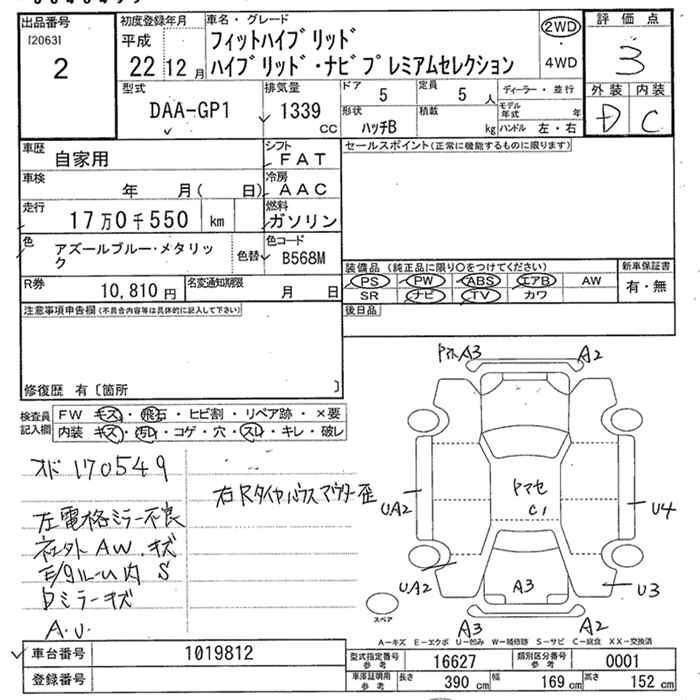 出品番号
[2063]
2
初度登録年月
平成
22 12月
車名・グレード
フィットハイブリッド
ハイブリッド・ナビプレミアムセレクション
2WD
・
4WD
評価点
3
外装 内装
D C
型式
DAA-GP1
排気量
1339
CC
ドア
5
定員
5 人
ディーラー・並行
形状
ハッチB
積載
kg
モデル年式 年
ハンドル 左・右
車歴
自家用
シフト
FAT
セールスポイント(正常に機能するものに限ります)
車検
年 月( 日)
冷房
AAC
走行
17万0千550 km
燃料
ガソリン
色
アズールブルー・メタリック
色替
色コード
B568M
装備品 (純正品に限り○をつけてください)
新車保証書
PS PW ABS エアB AW
有・無
SR ナビ TV カワ
R券
10,810円
名変通知期限
月 日
注意事項申告欄(不具合内容等は具体的に記入して下さい)
後日品
修復歴 有〔箇所 〕
検査員
記入欄
FW キズ・飛石・ヒビ割・リペア跡・×要
内装 キズ・汚レ・コゲ・穴・スレ・キレ・破レ
オド 170549
左電格ミラー不良
社外AW.キズ
モタルーム内 S
Dミラーキズ
A.U.
A3
A2
UA2
UA2
トマセ
C1
U4
U3
A3
A3
A2
スペア
A-キズ E-エクボ U-凹み W-補修跡 S-サビ C-腐食 XX-交換済
車台番号
1019812
登録番号
型式指定番号
参考
16627
類別区分番号
参考
0001
車庫証明用
参考
長さ
390 cm
幅
169 cm
高さ
152 cm